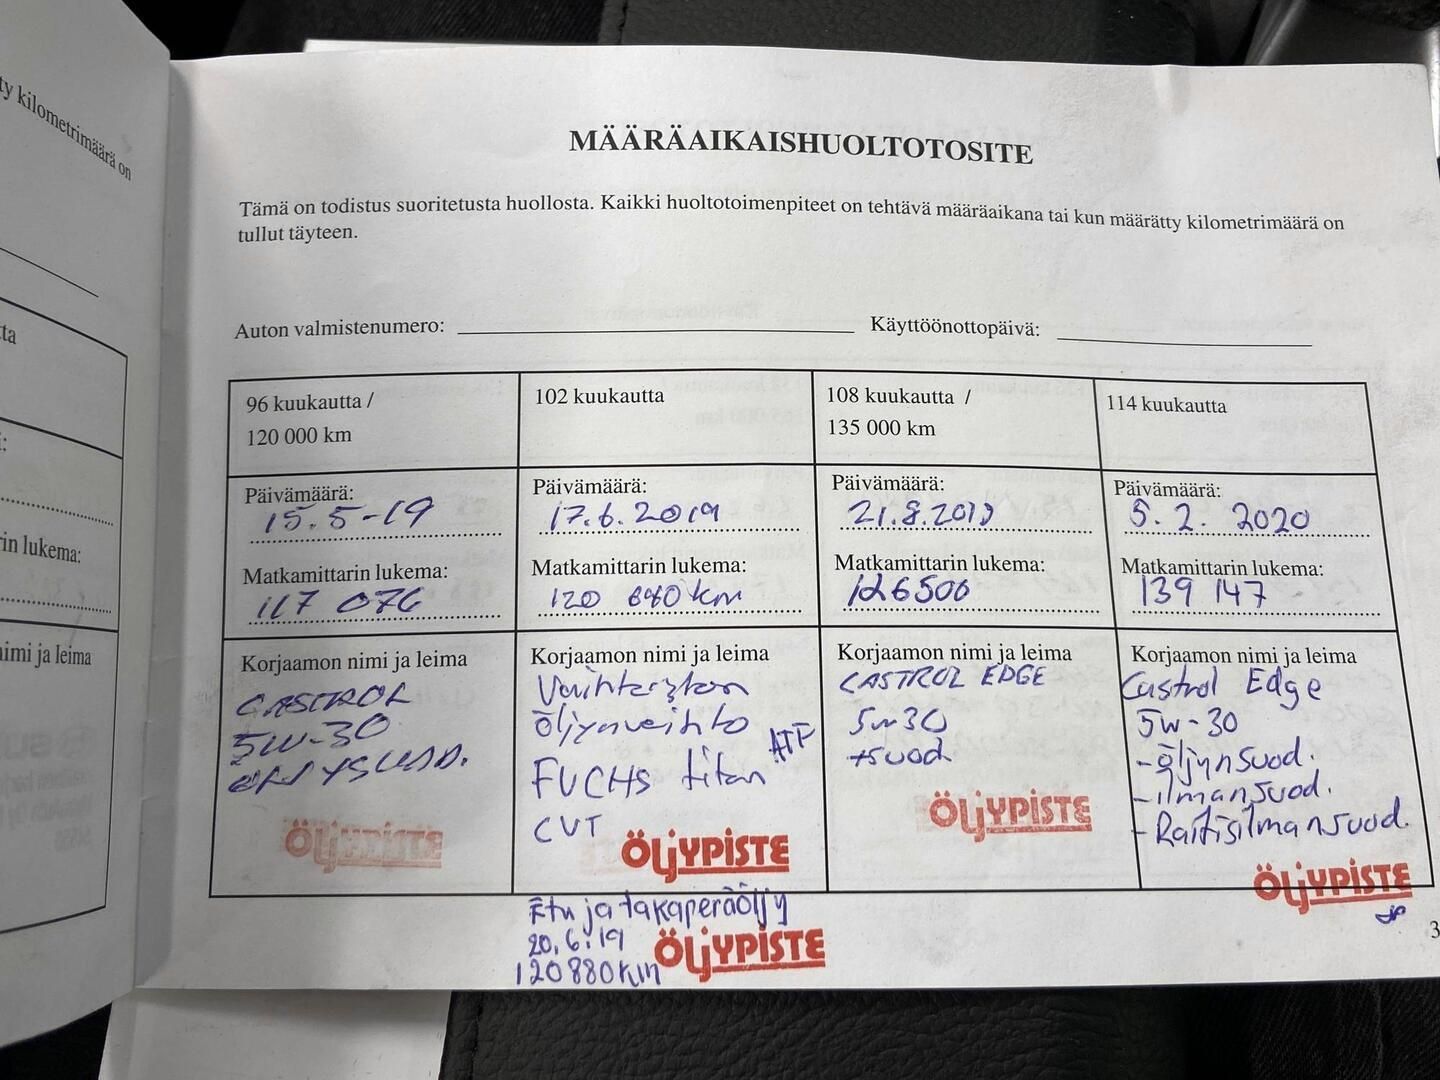 ty kilometrimäärä on
ta
i:
rin lukema:
nimi ja leima
MÄÄRÄAIKAISHUOLTOTOSITE
Tämä on todistus suoritetusta huollosta. Kaikki huoltotoimenpiteet on tehtävä määräaikana tai kun määrätty kilometrimäärä on
tullut täyteen.
Auton valmistenumero: Käyttöönottopäivä:
96 kuukautta /
120 000 km
Päivämäärä:
15.5-19
Matkamittarin lukema:
117 076
Korjaamon nimi ja leima
CASTROL
5W-30
ÖLJYPISTE
102 kuukautta
Päivämäärä:
17.6.2019
Matkamittarin lukema:
120 km
Korjaamon nimi ja leima
Vaihteiston
öljynvaihto
FUCHS titan ATF
CVT
ÖLJYPISTE
Etu ja takaperäöljy
20.6.19
120880km
ÖLJYPISTE
108 kuukautta /
135 000 km
Päivämäärä:
21.8.2019
Matkamittarin lukema:
126500
Korjaamon nimi ja leima
CASTROL EDGE
5w30
+suod
ÖLJYPISTE
114 kuukautta
Päivämäärä:
5.2. 2020
Matkamittarin lukema:
139 147
Korjaamon nimi ja leima
Castrol Edge
5w-30
-öljynsuod.
-ilmansuod.
-Raitisilmansuod.
ÖLJYPISTE
3